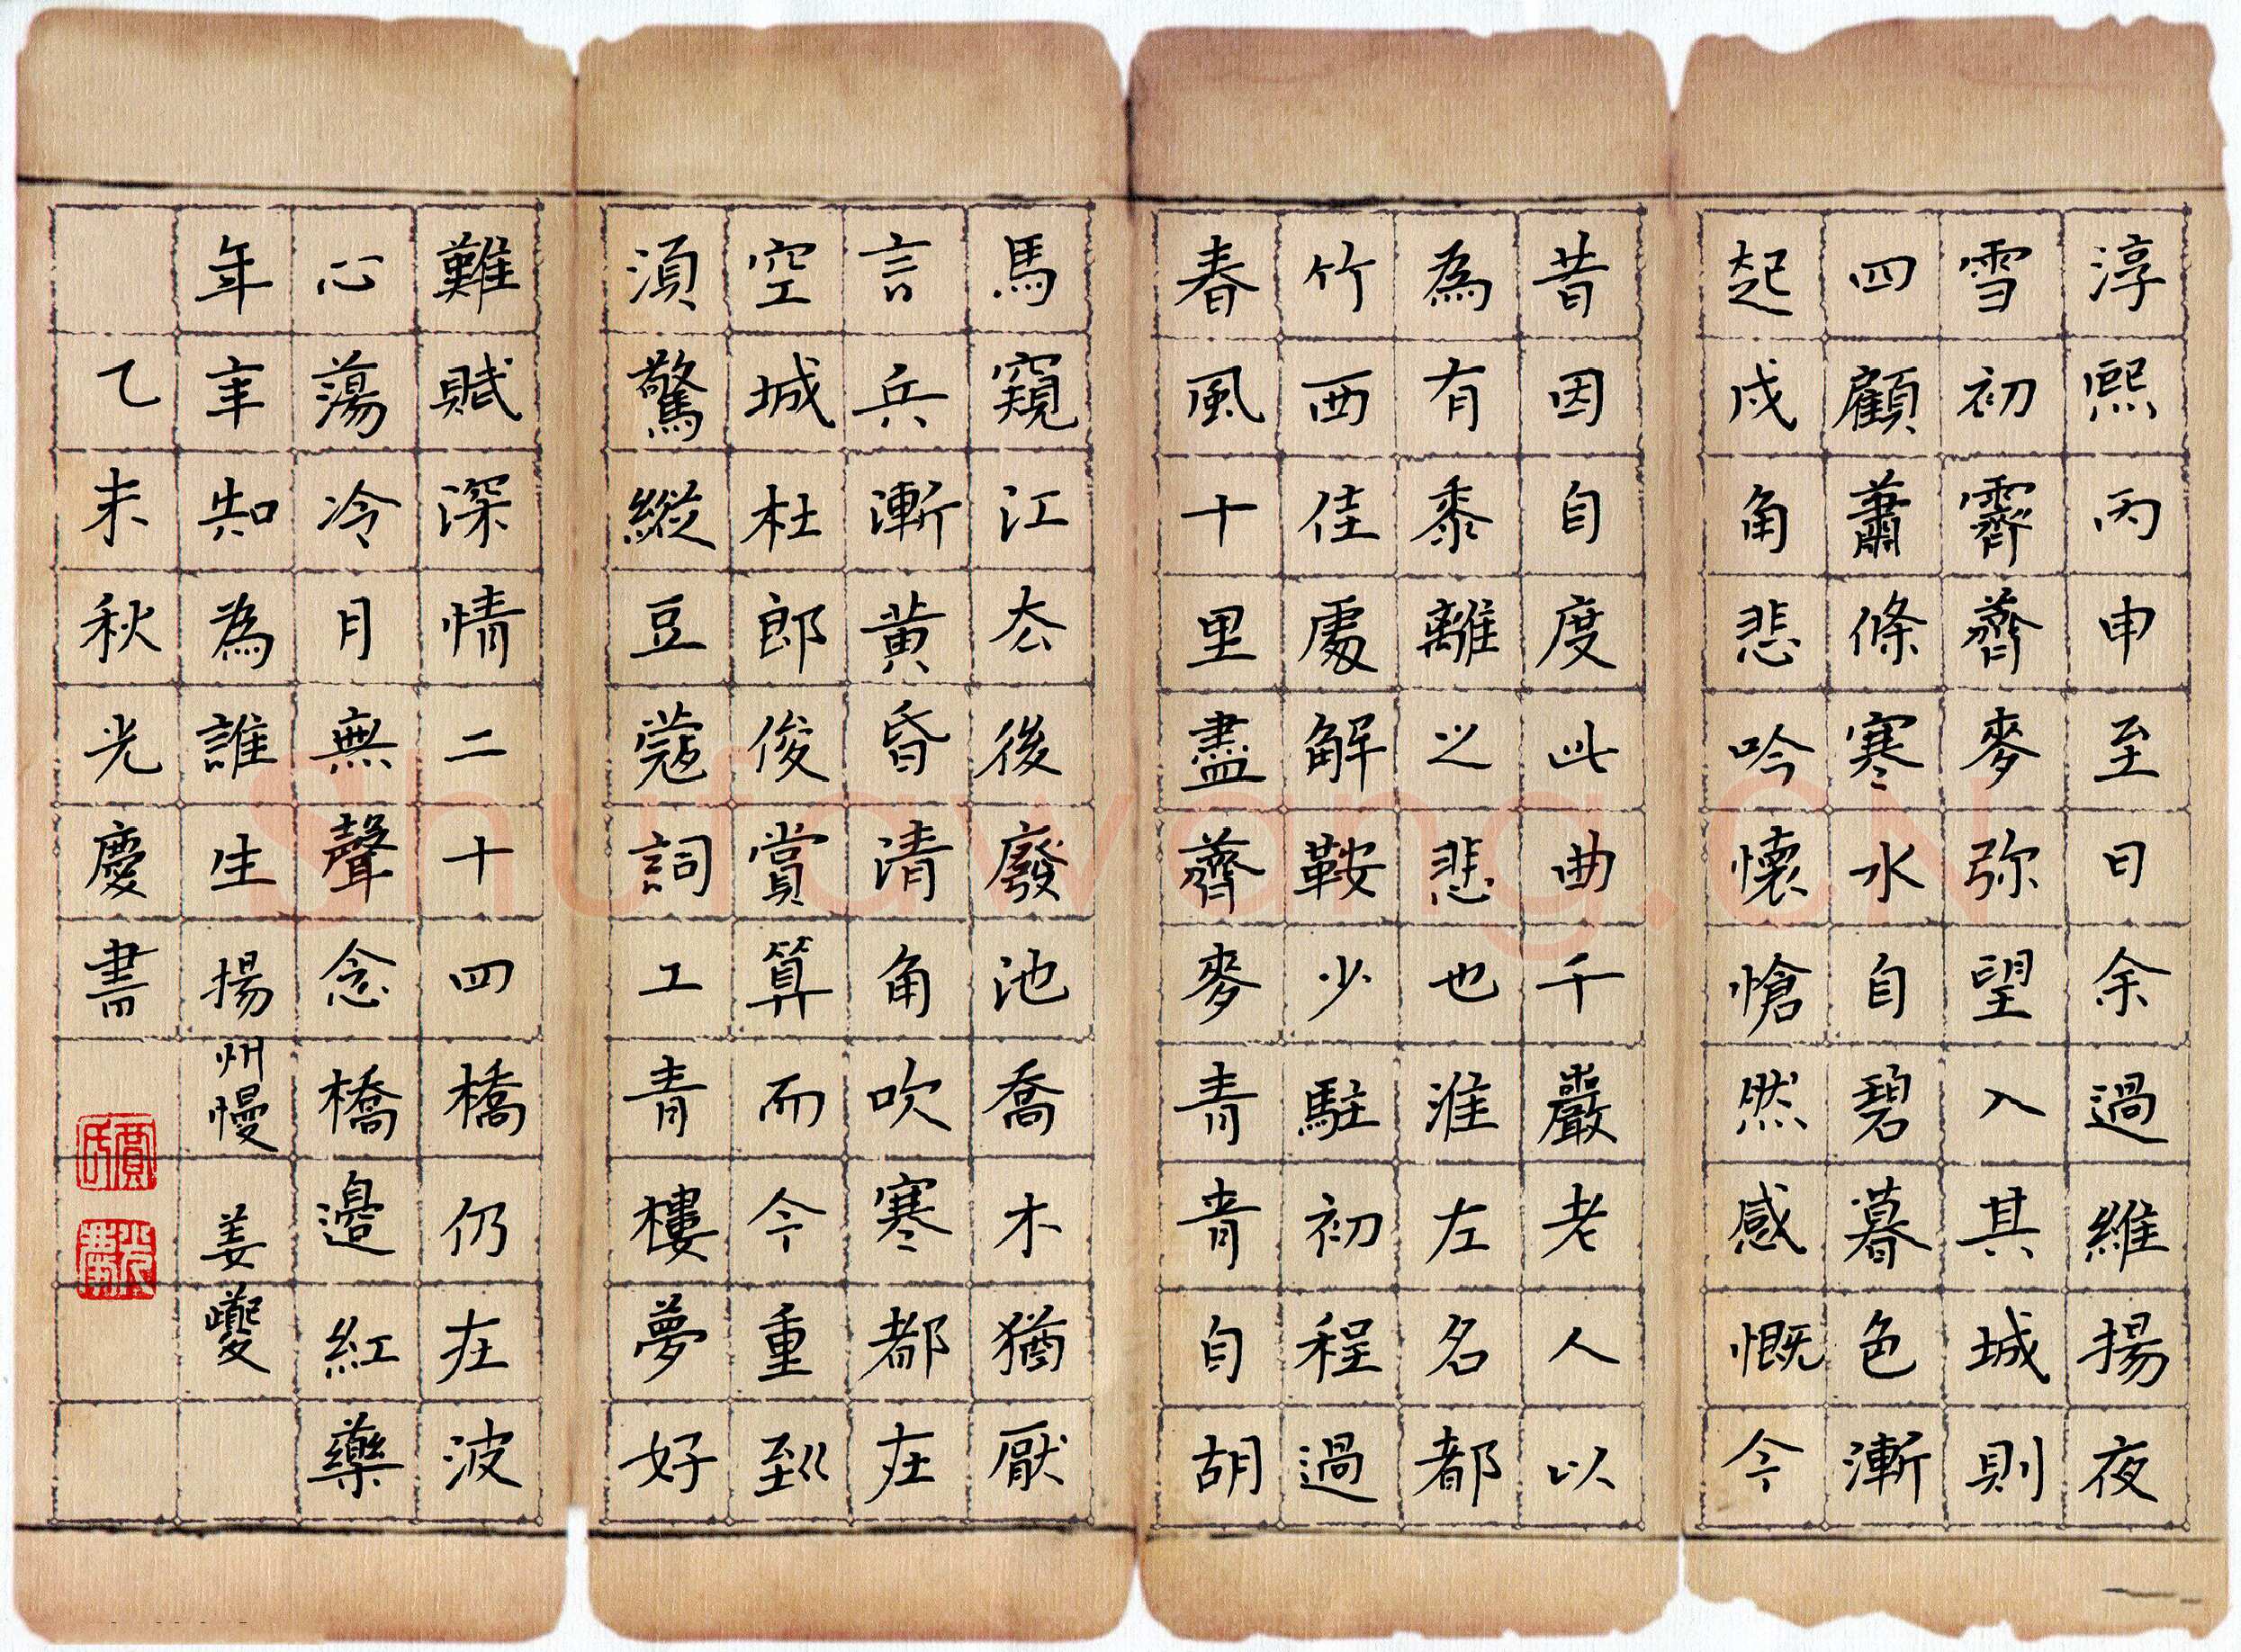 淳熙丙申至日余過維揚夜
雪初霽薺麥弥望入其城則
四顧蕭條寒水自碧暮色漸
起戍角悲吟懷愴然感慨今
昔因自度此曲千嚴老人以
為有黍離之悲也淮左名都
竹西佳處解鞍少駐初程過
春風十里盡薺麥青青自胡
馬窺江去後廢池喬木猶厭
言兵漸黄昏清角吹寒都在
空城杜郎俊賞算而今重到
須驚縱豆蔻詞工青樓夢好
難賦深情二十四橋仍在波
心蕩冷月無聲念橋邊紅藥
年年知為誰生揚州慢 姜夔
乙未秋光慶書
賈氏
光慶
Shufawang.CN